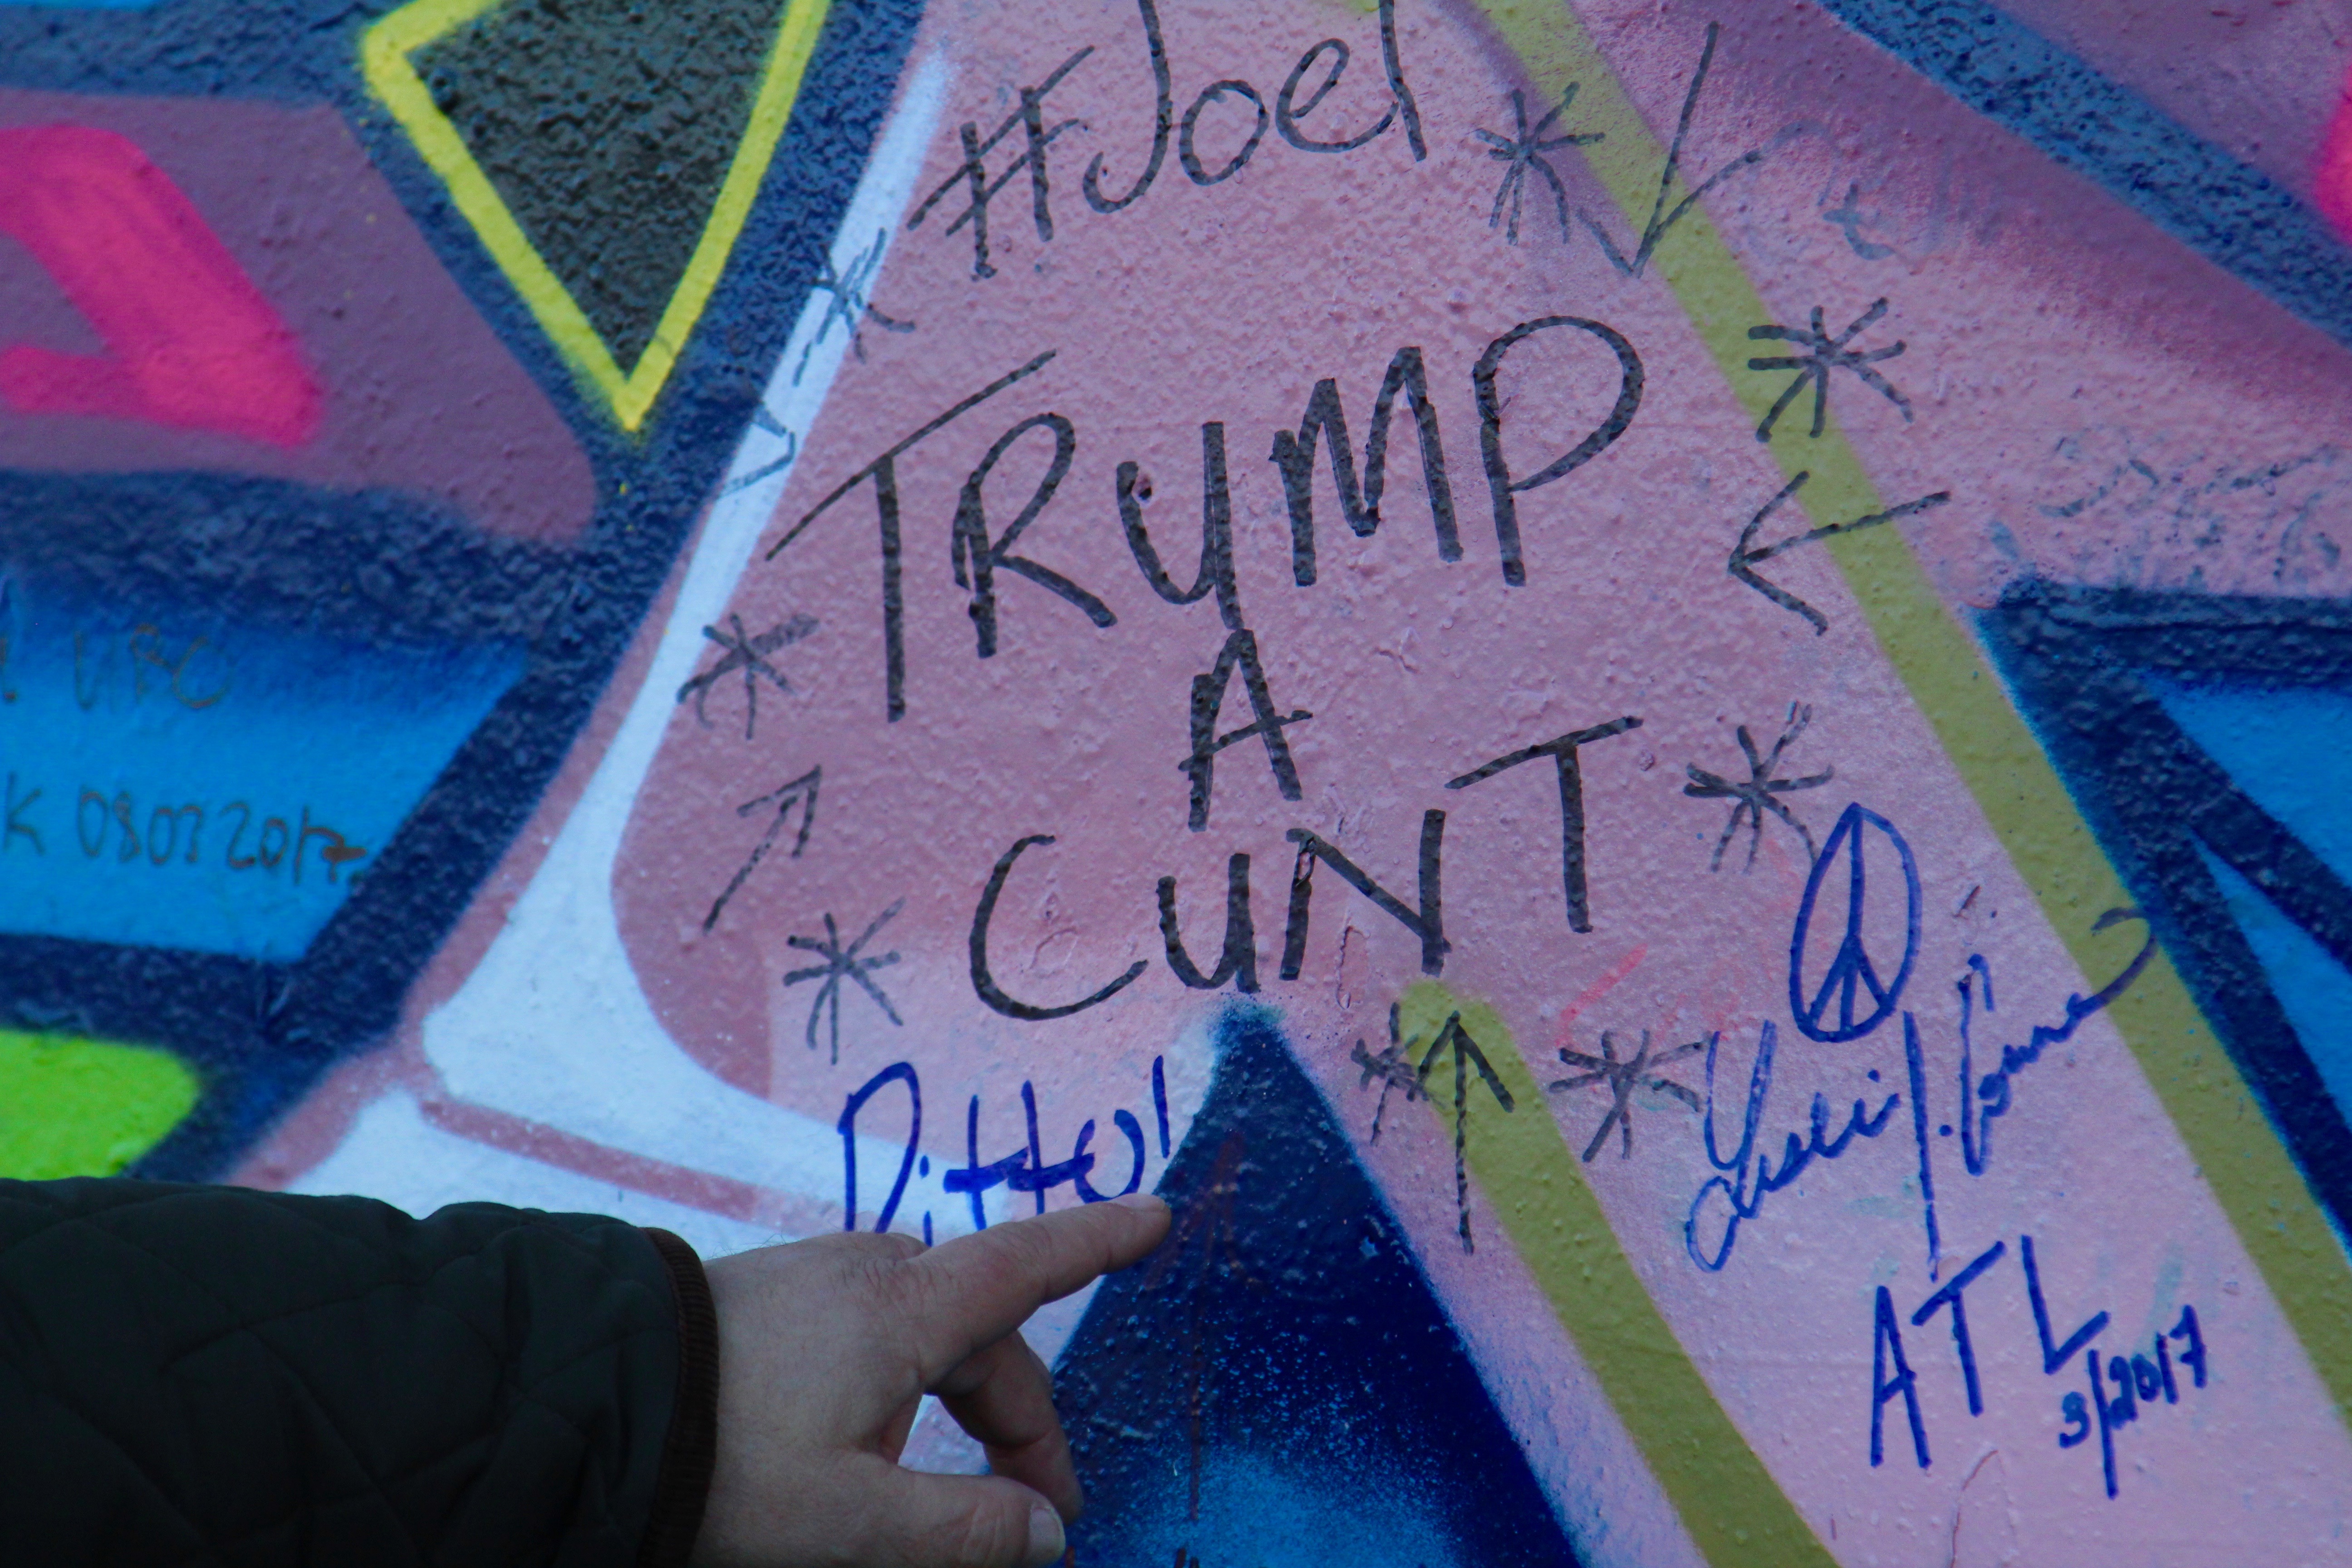 #Joel
TRUMP
A
CUNT
Ditto!
ATL
3/2017
UBC
K 08032017